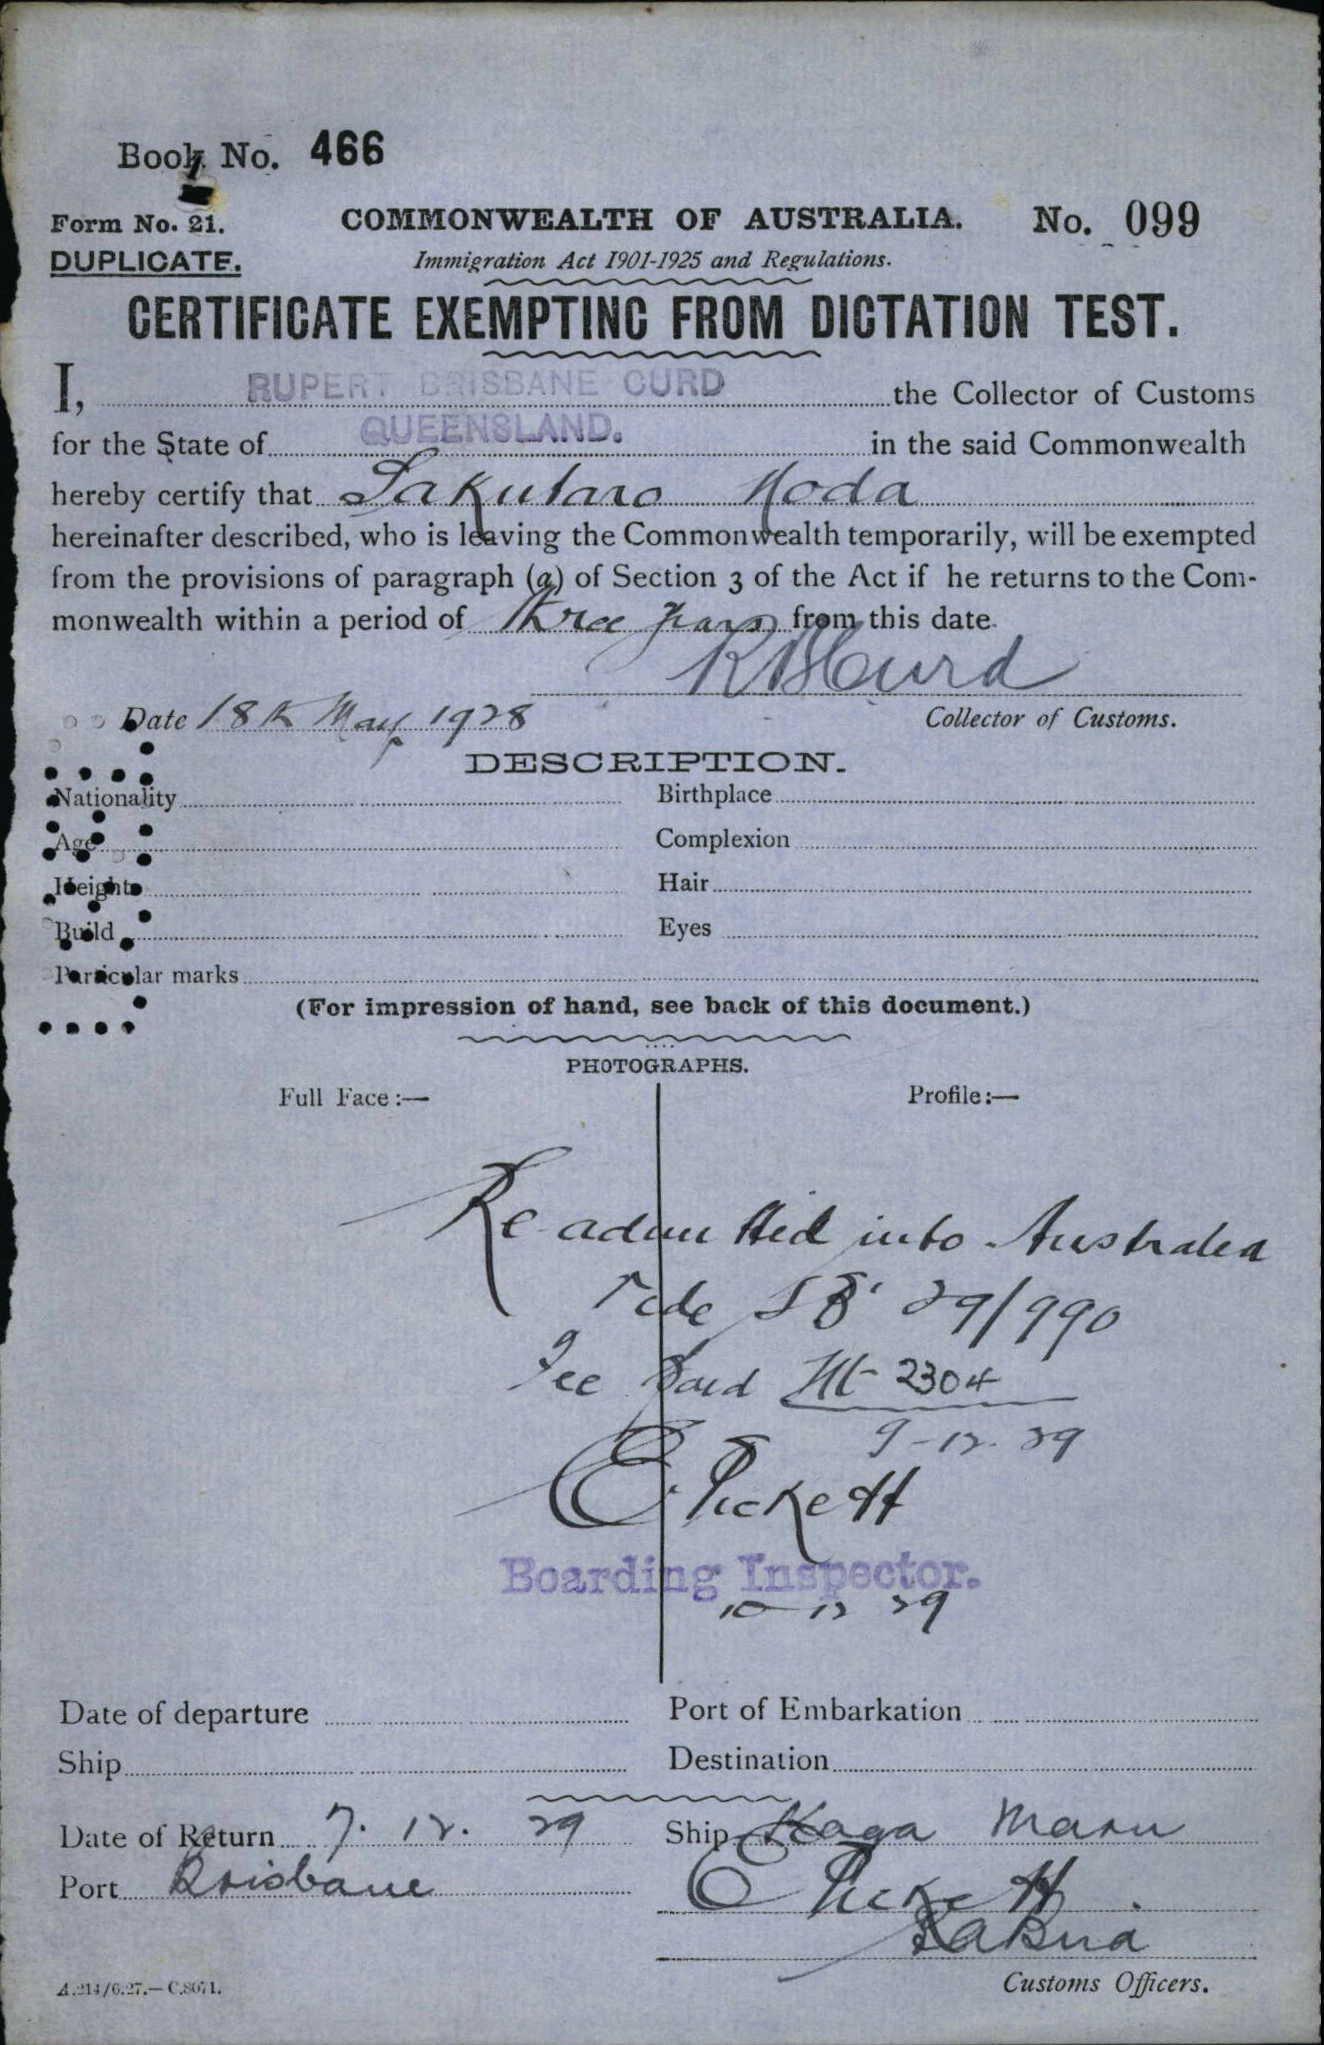 Book No. 466
Form No. 21.
COMMONWEALTH OF AUSTRALIA.
No. 099
DUPLICATE.
Immigration Act 1901-1925 and Regulations.
CERTIFICATE EXEMPTING FROM DICTATION TEST.
I, RUPERT BRISBANE CURD the Collector of Customs
for the State of QUEENSLAND. in the said Commonwealth
hereby certify that Sakutaro Noda
hereinafter described, who is leaving the Commonwealth temporarily, will be exempted
from the provisions of paragraph (a) of Section 3 of the Act if he returns to the Com-
monwealth within a period of three years from this date.
R B Curd
Date 18th May 1928
Collector of Customs.
DESCRIPTION.
Nationality
Birthplace
Age
Complexion
Height
Hair
Build
Eyes
Particular marks
(For impression of hand, see back of this document.)
PHOTOGRAPHS.
Full Face:—
Profile:—
Re admitted into Australia
Vide SB 29/990
Fee paid 2304
9-12-29
E. Pickett
Boarding Inspector.
10-12 29
Date of departure
Port of Embarkation
Ship
Destination
Date of Return 7. 12. 29
Ship Kaga Maru
Port Brisbane
E Pickett
Customs Officers.
A.214/6.27.—C.8071.